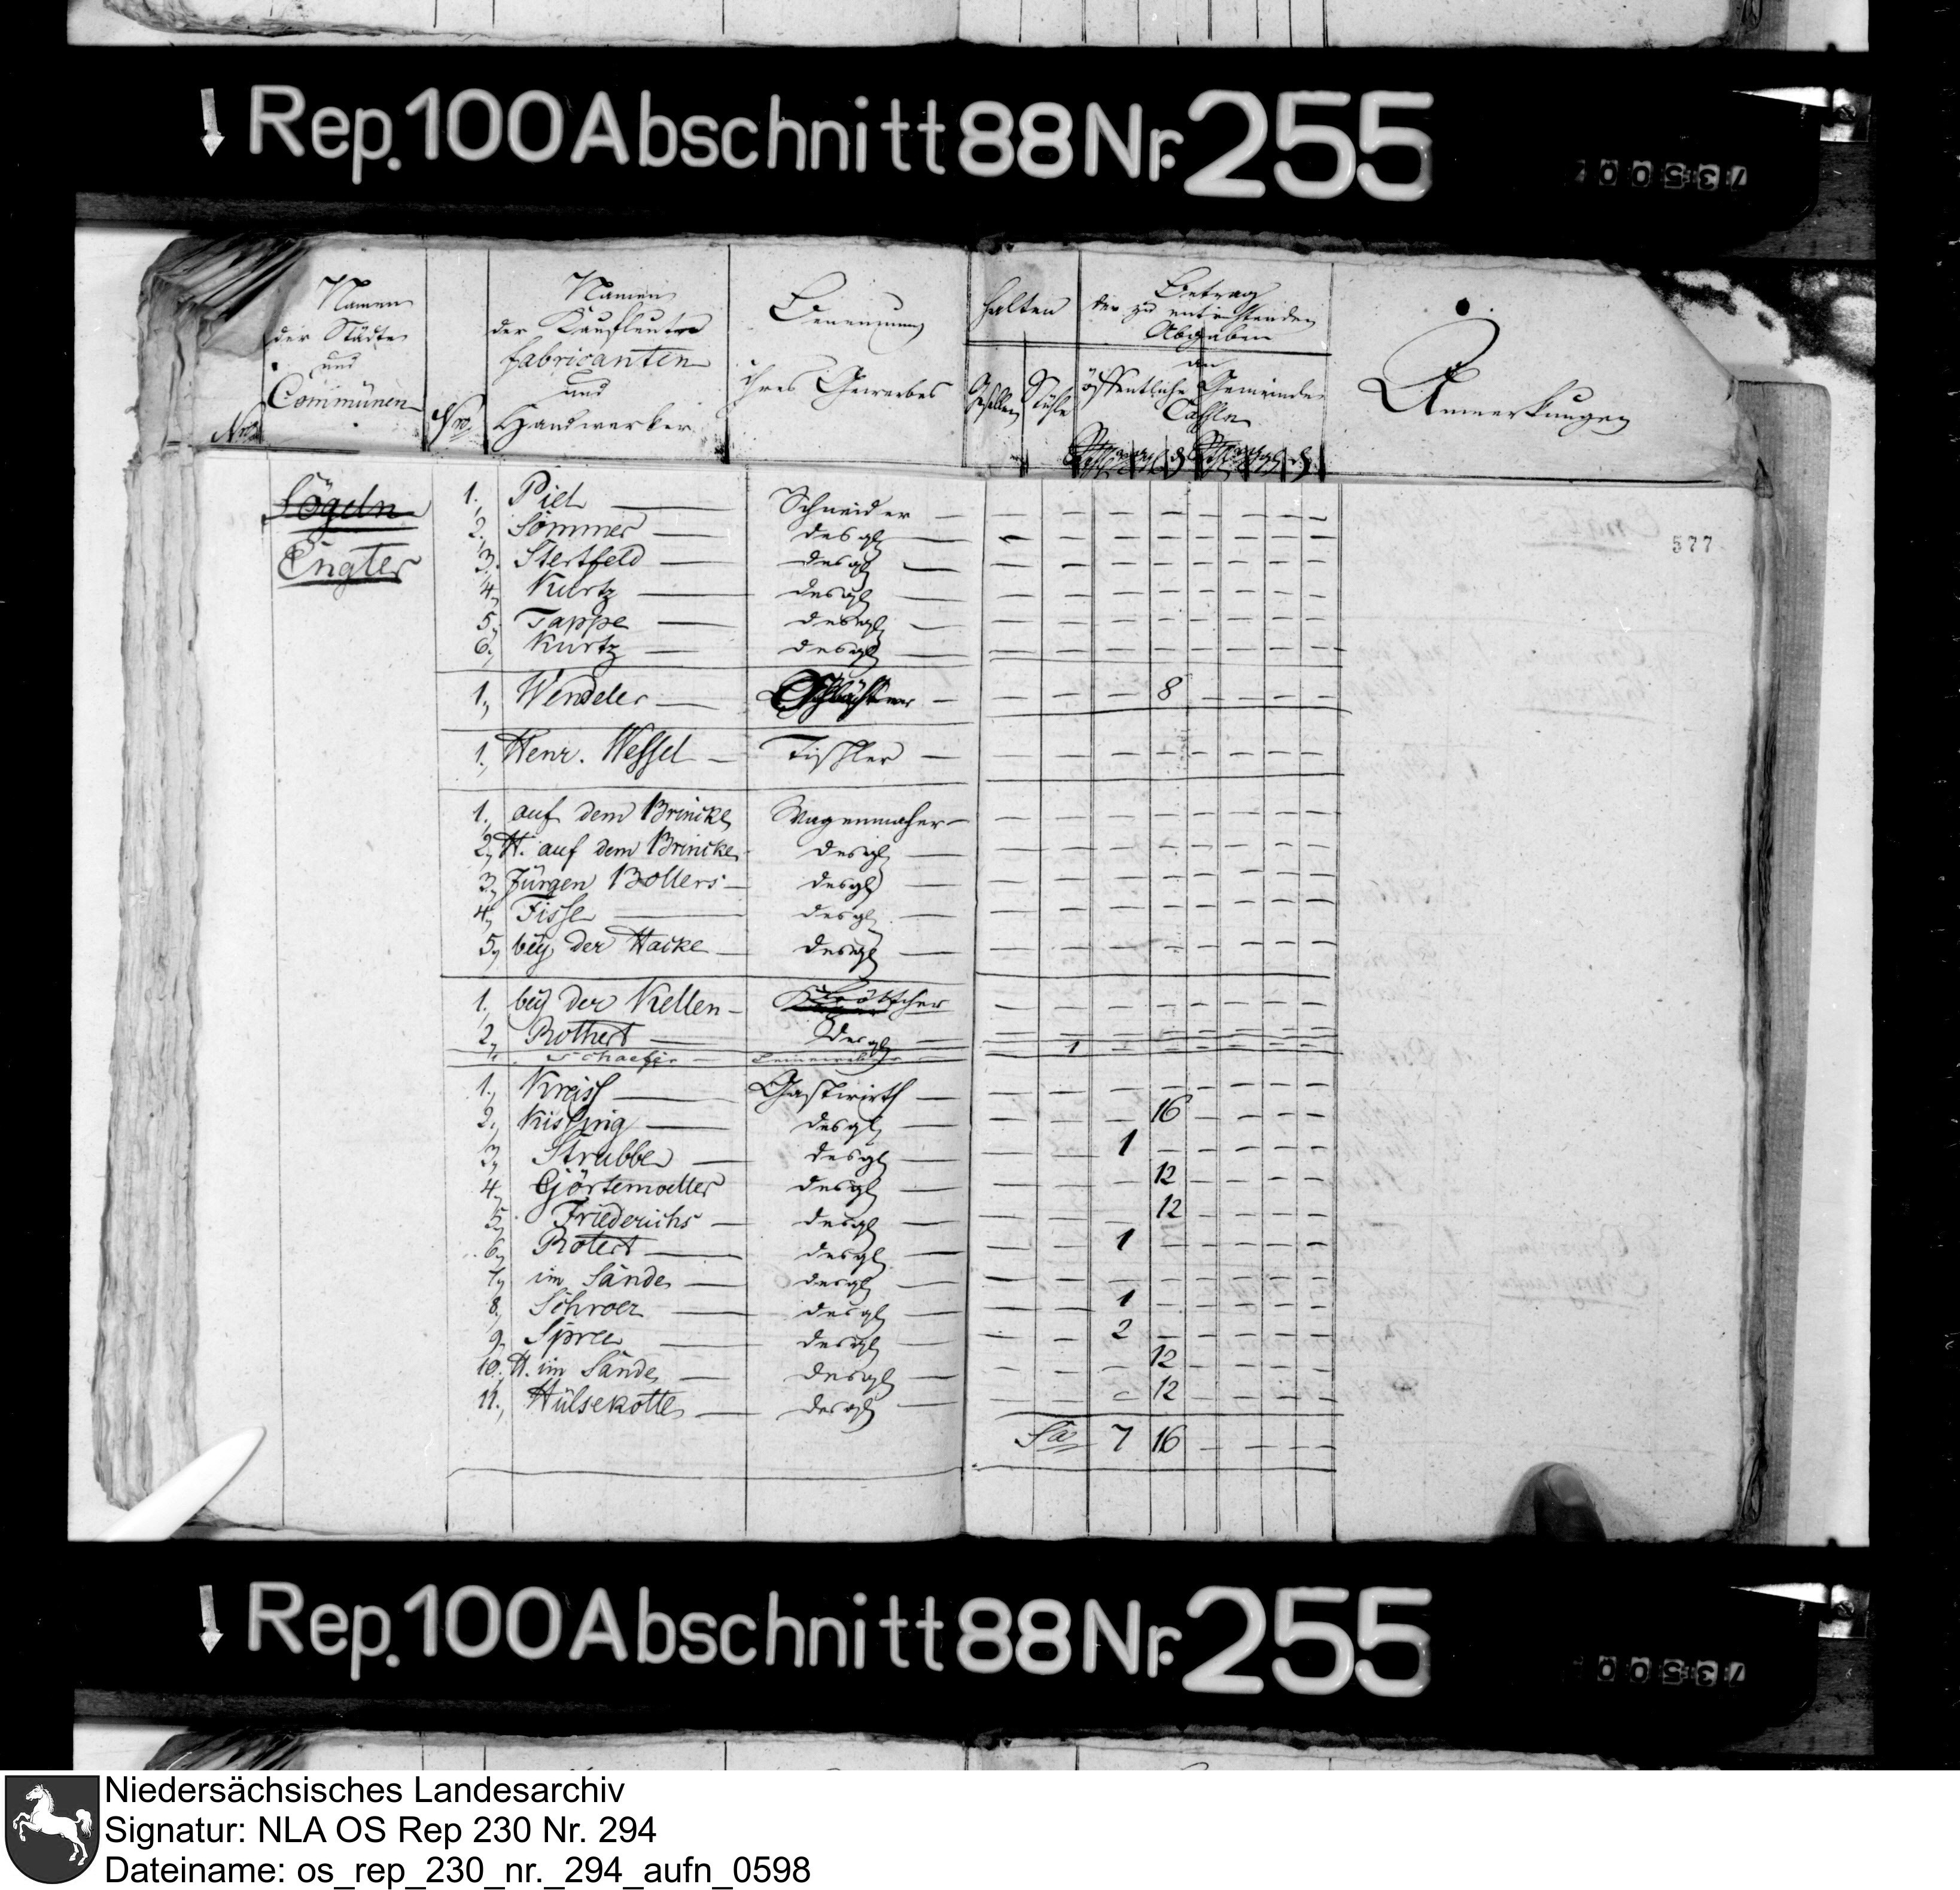 Rep. 100 Abschnitt 88 Nr. 255
735007
Namen der Städte und Communen
Nro
Namen der Kaufleute fabricanten und Handwerker
Benennung ihres Gewerbes
halten
Gesellen
Stühle
Betrag der zu entrichtenden Abgaben
an öffentliche Gemeinde Cassen
Anmerkungen
577
Sögeln
Engter
1. Piel — Schneider — — — — — — — — —
2. Sommer — desgl — — — — — — — — —
3. Stertfeld — desgl — — — — — — — — —
4. Kurtz — desgl — — — — — — — — —
5. Tappe — desgl — — — — — — — — —
6. Kurtz — desgl — — — — — — — — —
1. Wendeler — — — — — 8 — — — —
1. Henr. Wessel — Tischler — — — — — — —
1. auf dem Brincke Wagenmacher — — — — — — — — —
2. H. auf dem Brincke desgl — — — — — — — — —
3. Jürgen Bollers — desgl — — — — — — — — —
4. Fisse — desgl — — — — — — — — —
5. bey der Hacke — desgl — — — — — — — — —
1. bey der Kellen — Böttcher — — — — — — — —
2. Rothert — desgl — — — — — — — — —
1. Schaefer — 1 — — — — — — —
1. Kreiss — Gastwirth — — — — — — — — —
2. Kissling — desgl — — — — 16 — — — —
3. Strubbe — desgl — — — 1 — — — — —
4. Görtemoeller desgl — — — — 12 — — — —
5. Friederichs — desgl — — — — 12 — — — —
6. Rotert — desgl — — — 1 — — — — —
7. im Sande — desgl — — — — — — — — —
8. Schroer — desgl — — — 1 — — — — —
9. Spree — desgl — — — 2 — — — — —
10. H. im Sande — desgl — — — — 12 — — — —
11. Hülsekotte — desgl — — — — 12 — — — —
Sa 7 16 — — — —
Rep. 100 Abschnitt 88 Nr. 255
735007
Niedersächsisches Landesarchiv
Signatur: NLA OS Rep 230 Nr. 294
Dateiname: os_rep_230_nr._294_aufn_0598